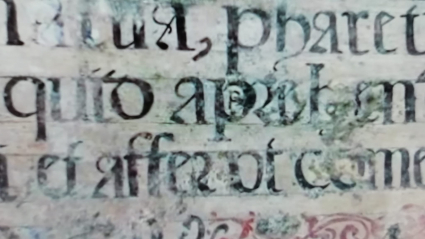 tua, pharet
quid apreh en
et affer vt come